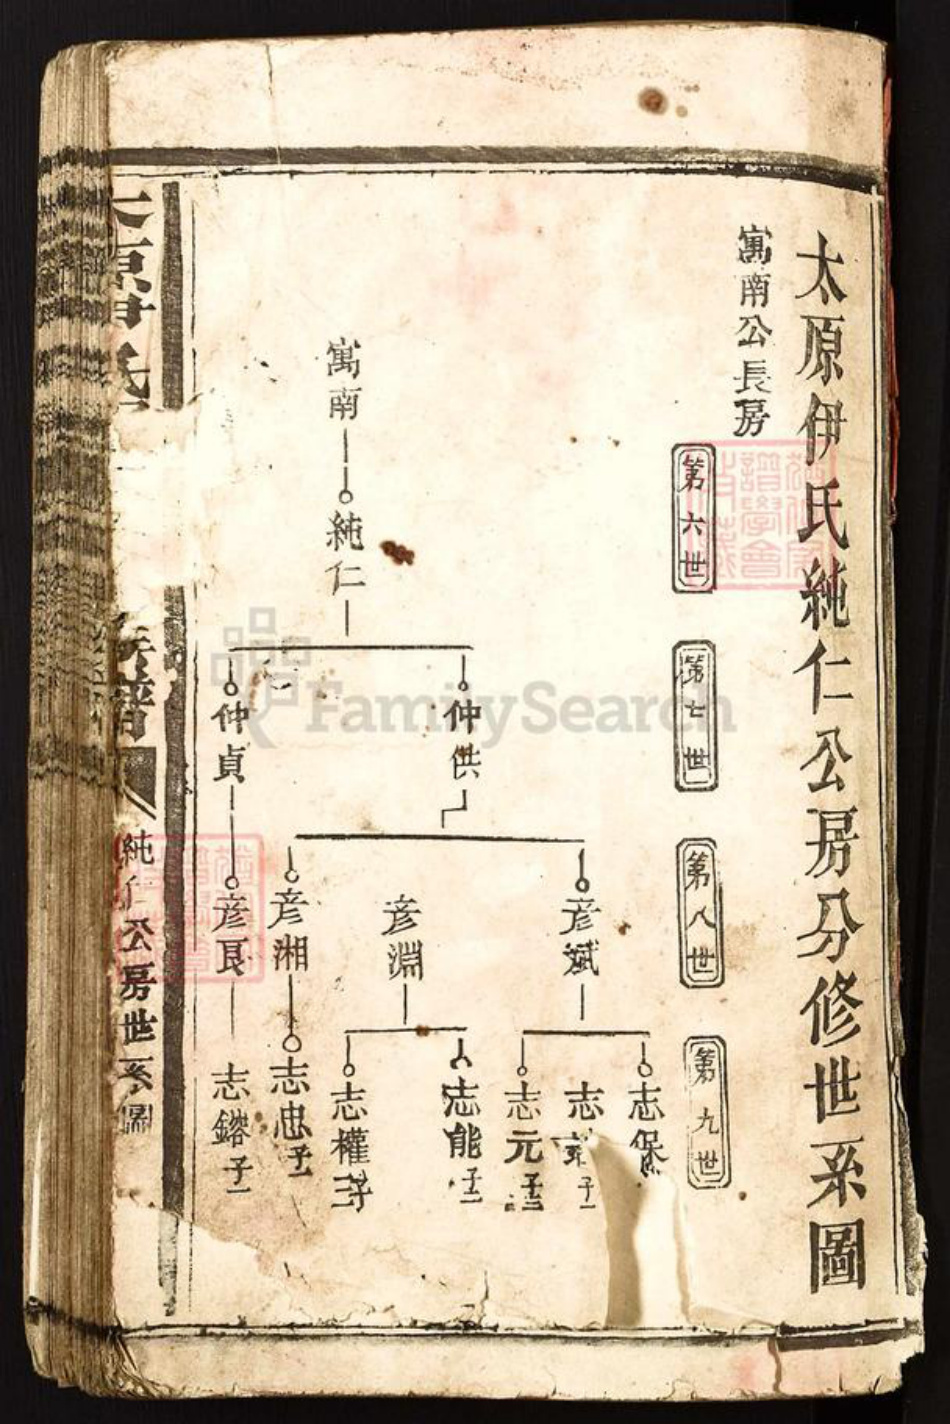 太原伊氏純仁公房分修世系圖
寓南公長房
第六世
第七世
第八世
第九世
寓南
純仁
仲供
仲貞
彦斌
彦淵
彦湘
彦良
志保
志
子一
志元
子三
志能
子二
志權
子三
志忠
子一
志鎔
子一
族譜
純仁公房世系圖
FamilySearch